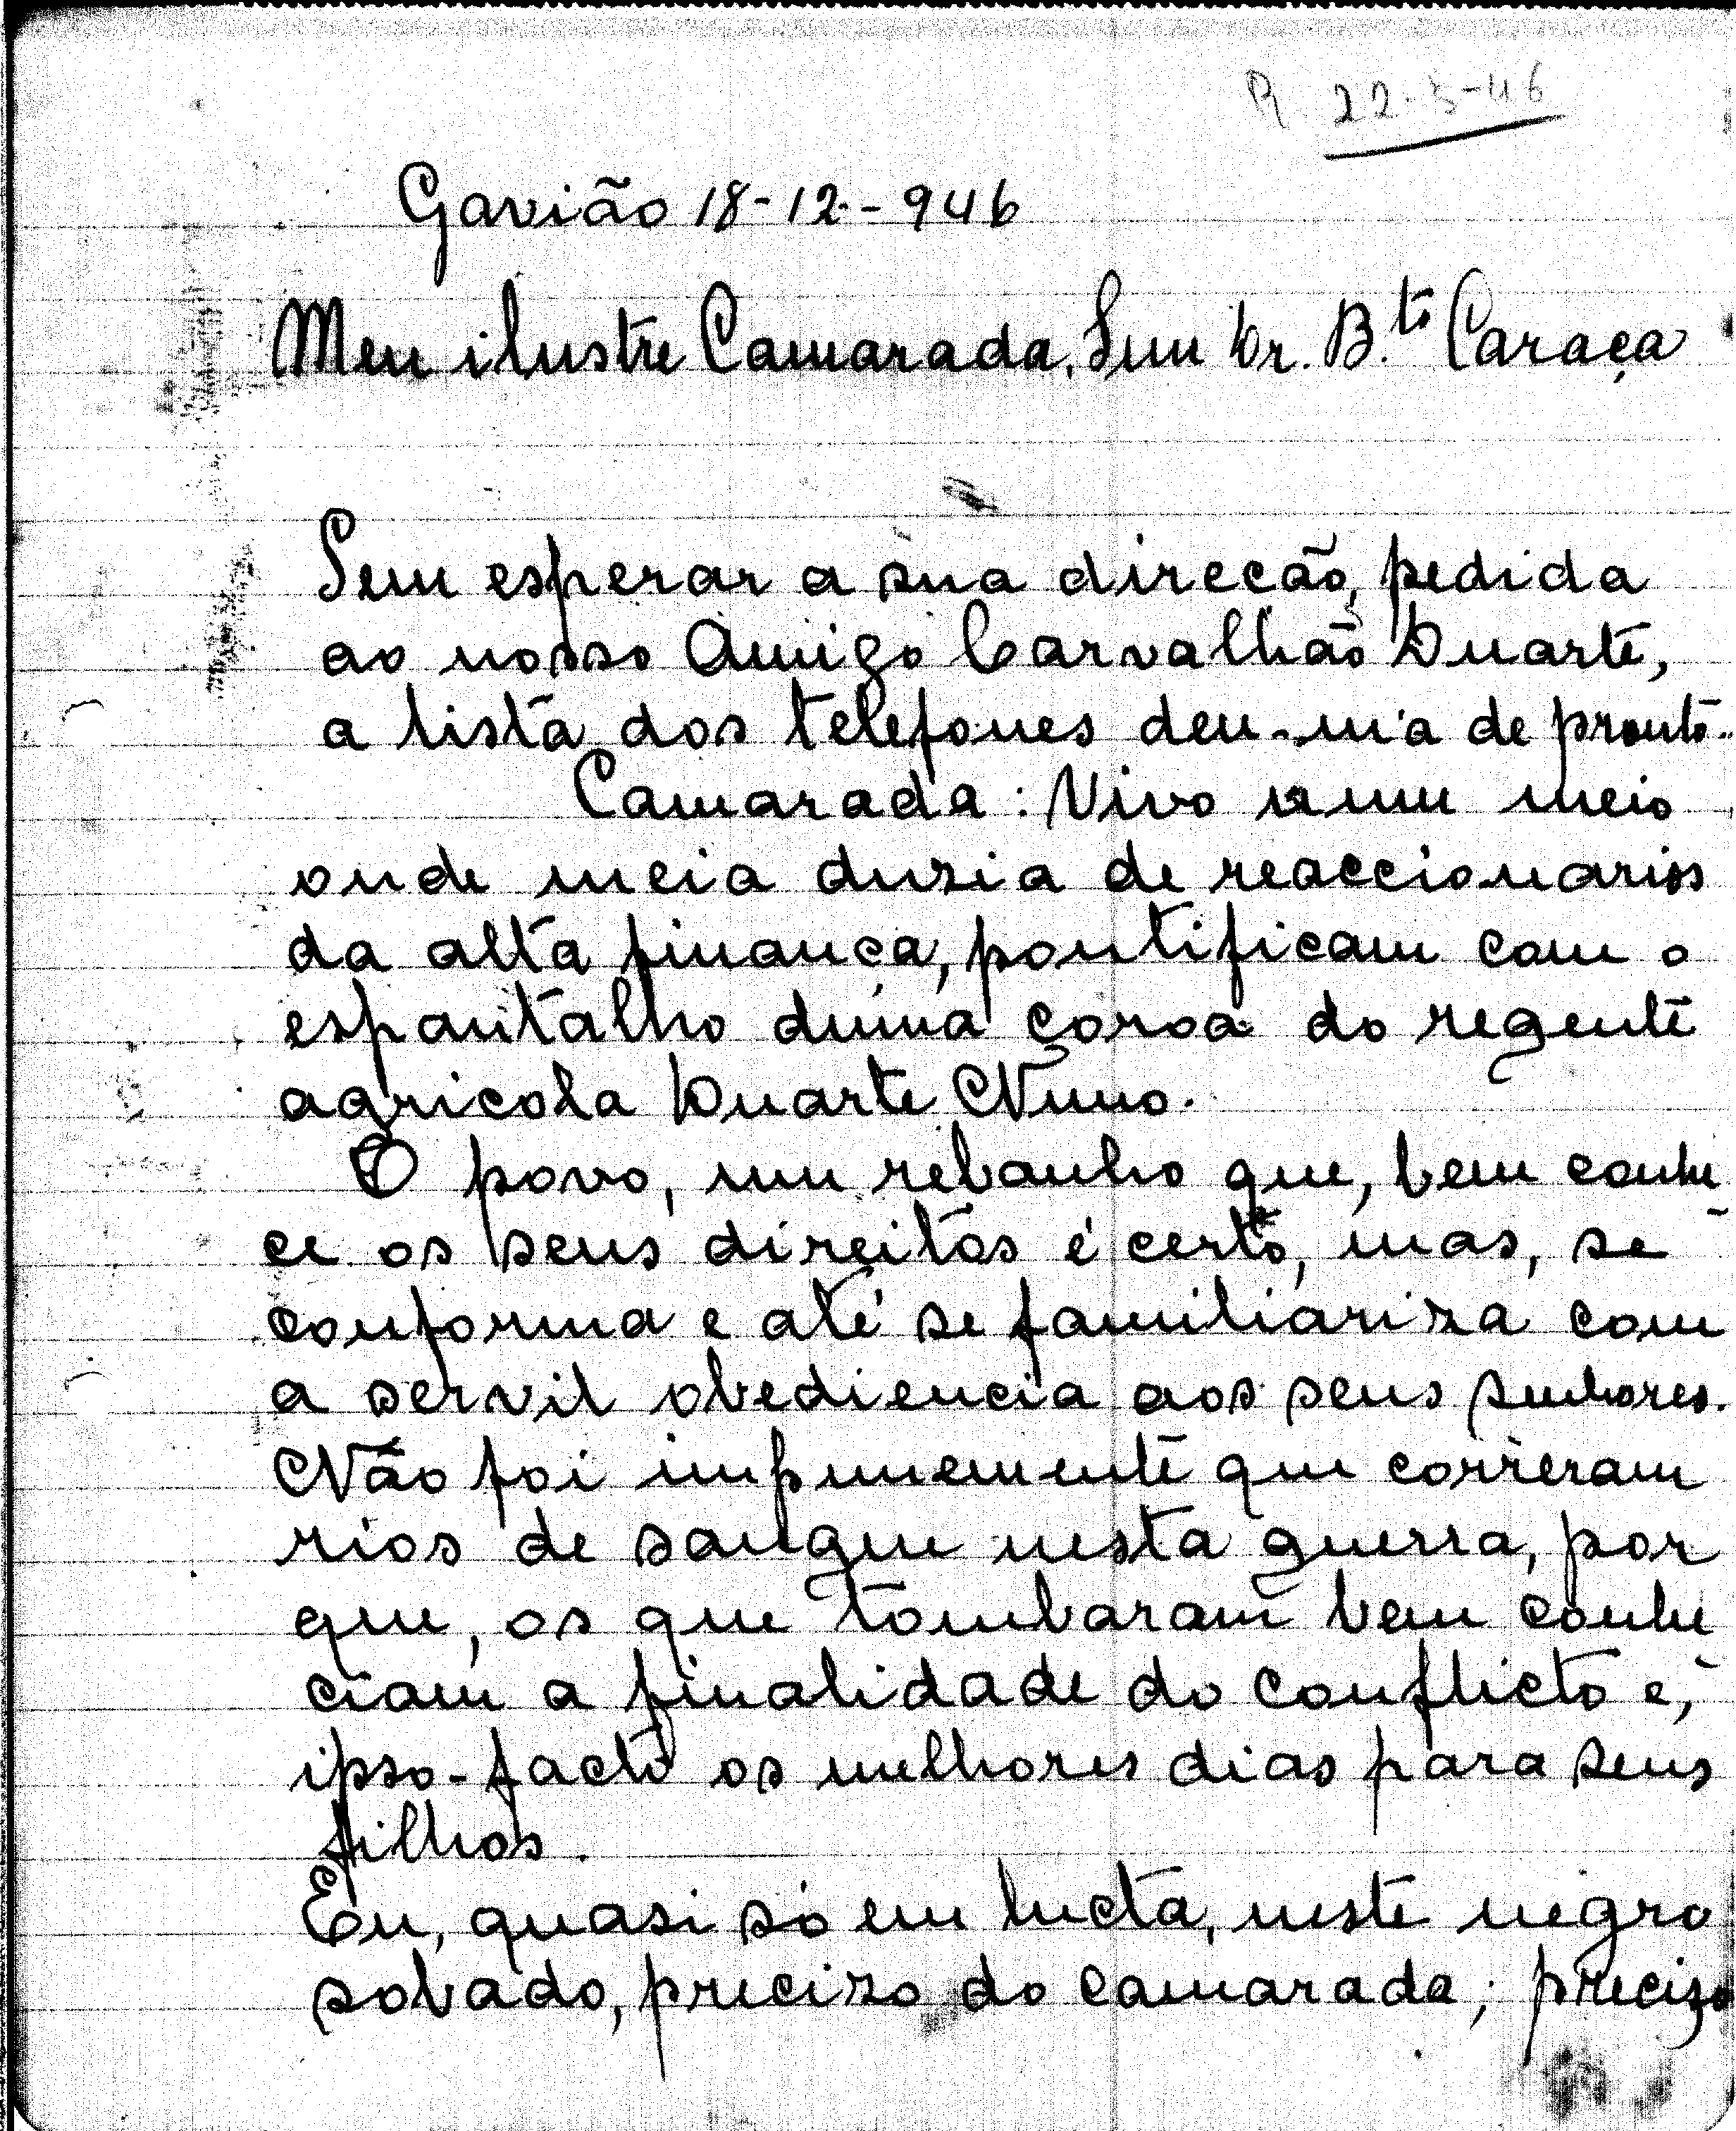 R 22-3-46
Gavião 18-12-946
Meu ilustre Camarada, Snr. Dr. B.to Caraça
Sem esperar a sua direcão, pedida
ao nosso Amigo Carvalhão Duarte,
a lista dos telefones deu-m'a de pronto.
Camarada: Vivo num meio
onde meia duzia de reaccionarios
da alta finança, pontificam com o
espantalho duma coroa do regente
agricola Duarte Nuno.
O povo, um rebanho que, bem conhe
ce os seus direitos é certo, mas, se
conforma e até se familiariza com
a servil obediencia aos seus senhores.
Não foi impunemente que correram
rios de sangue nesta guerra, por
que, os que tombaram bem conhe
ciam a finalidade do conflicto e,
ipso-facto os melhores dias para seus
filhos.
Eu, quasi só em lucta, neste negro
sobado, precizo do camarada; precizo